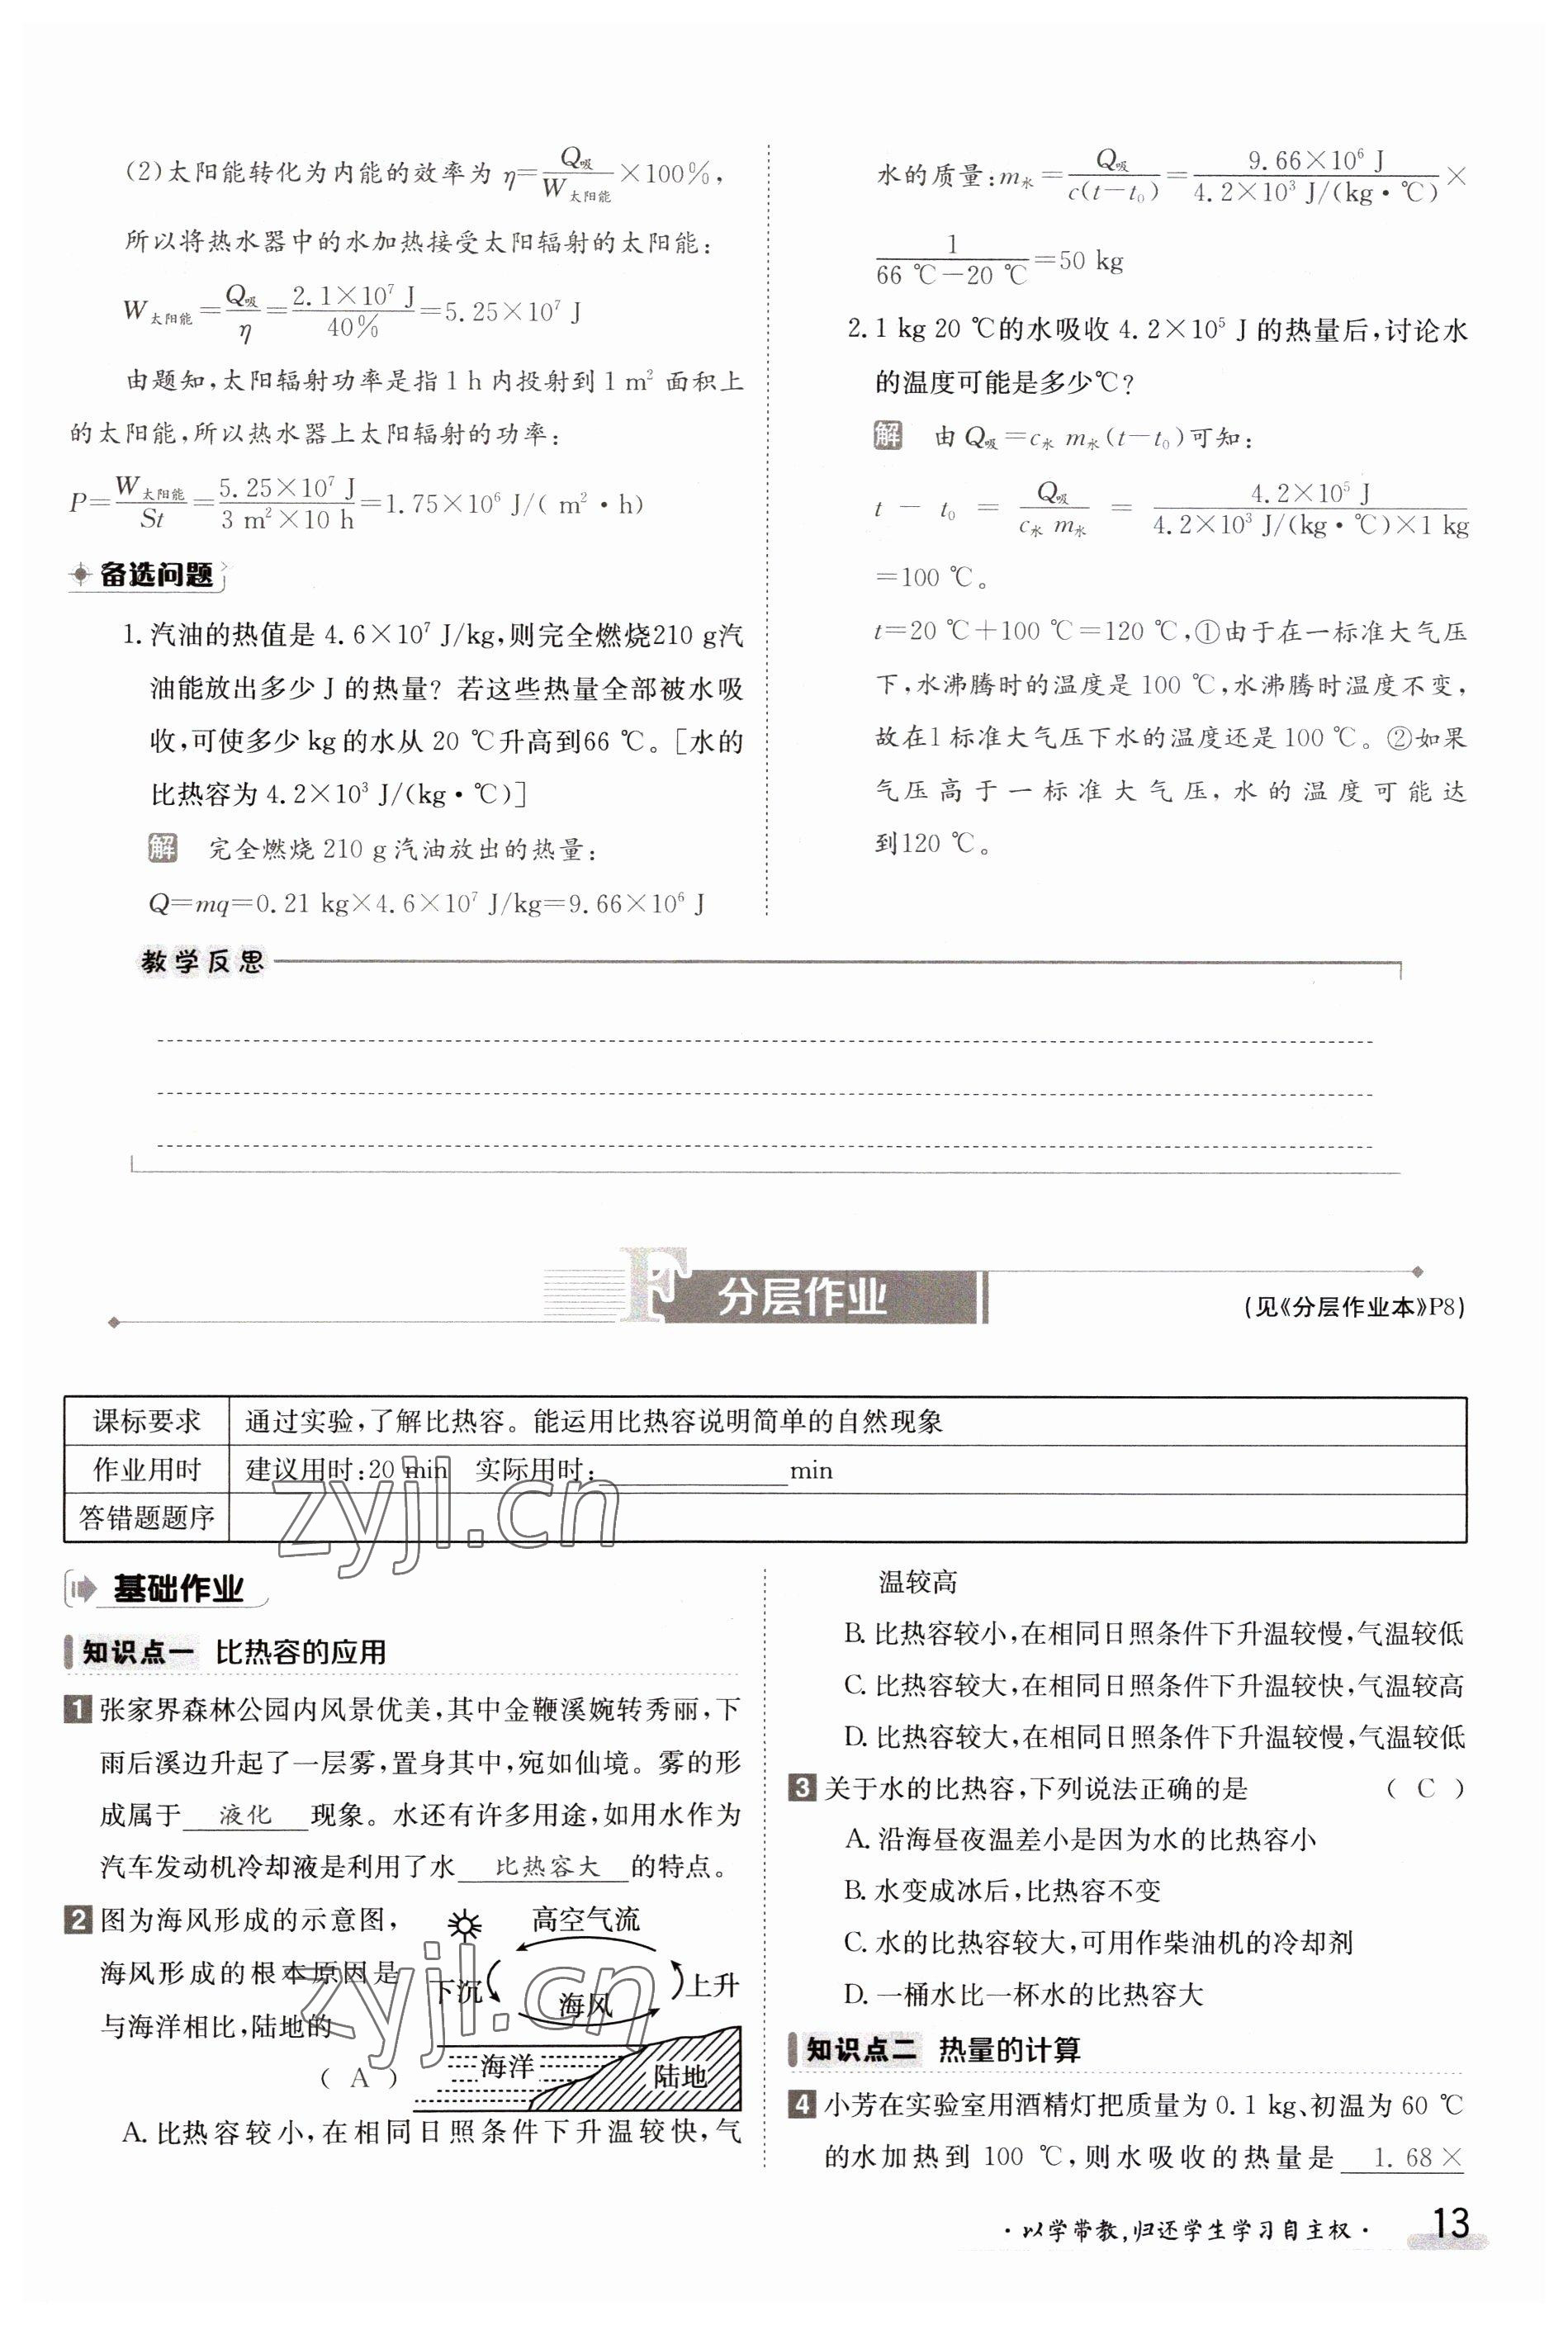 (2)太阳能转化为内能的效率为 η=Q吸/W太阳能×100%,
所以将热水器中的水加热接受太阳辐射的太阳能:
W太阳能=Q吸/η=2.1×10⁷ J/40%=5.25×10⁷ J
由题知,太阳辐射功率是指 1 h 内投射到 1 m² 面积上
的太阳能,所以热水器上太阳辐射的功率:
P=W太阳能/St=5.25×10⁷ J/3 m²×10 h=1.75×10⁶ J/( m²·h)
备选问题
1. 汽油的热值是 4.6×10⁷ J/kg,则完全燃烧210 g汽
油能放出多少 J 的热量? 若这些热量全部被水吸
收,可使多少 kg 的水从 20 ℃升高到66 ℃。[水的
比热容为 4.2×10³ J/(kg·℃)]
解 完全燃烧 210 g 汽油放出的热量:
Q=mq=0.21 kg×4.6×10⁷ J/kg=9.66×10⁶ J
水的质量:m水=Q吸/c(t-t₀)=9.66×10⁶ J/4.2×10³ J/(kg·℃)×
1/66 ℃-20 ℃=50 kg
2. 1 kg 20 ℃的水吸收 4.2×10⁵ J 的热量后,讨论水
的温度可能是多少℃?
解 由 Q吸=c水 m水(t-t₀)可知:
t - t₀ = Q吸/c水 m水 = 4.2×10⁵ J/4.2×10³ J/(kg·℃)×1 kg
=100 ℃。
t=20 ℃+100 ℃=120 ℃,①由于在一标准大气压
下,水沸腾时的温度是 100 ℃,水沸腾时温度不变,
故在1 标准大气压下水的温度还是 100 ℃。②如果
气压高于一标准大气压,水的温度可能达
到120 ℃。
教学反思
F 分层作业
(见《分层作业本》P8)
课标要求 通过实验,了解比热容。能运用比热容说明简单的自然现象
作业用时 建议用时:20 min 实际用时:________min
答错题题序
zyjl.cn
基础作业
知识点一 比热容的应用
1 张家界森林公园内风景优美,其中金鞭溪婉转秀丽,下
雨后溪边升起了一层雾,置身其中,宛如仙境。雾的形
成属于 液化 现象。水还有许多用途,如用水作为
汽车发动机冷却液是利用了水 比热容大 的特点。
2 图为海风形成的示意图,
海风形成的根本原因是
与海洋相比,陆地的
( A )
高空气流
下沉
海风
上升
海洋
陆地
zyjl.cn
A. 比热容较小,在相同日照条件下升温较快,气
温较高
B. 比热容较小,在相同日照条件下升温较慢,气温较低
C. 比热容较大,在相同日照条件下升温较快,气温较高
D. 比热容较大,在相同日照条件下升温较慢,气温较低
3 关于水的比热容,下列说法正确的是 ( C )
A. 沿海昼夜温差小是因为水的比热容小
B. 水变成冰后,比热容不变
C. 水的比热容较大,可用作柴油机的冷却剂
D. 一桶水比一杯水的比热容大
知识点二 热量的计算
4 小芳在实验室用酒精灯把质量为 0.1 kg、初温为 60 ℃
的水加热到 100 ℃,则水吸收的热量是 1.68×
·以学带教,归还学生学习自主权·
13